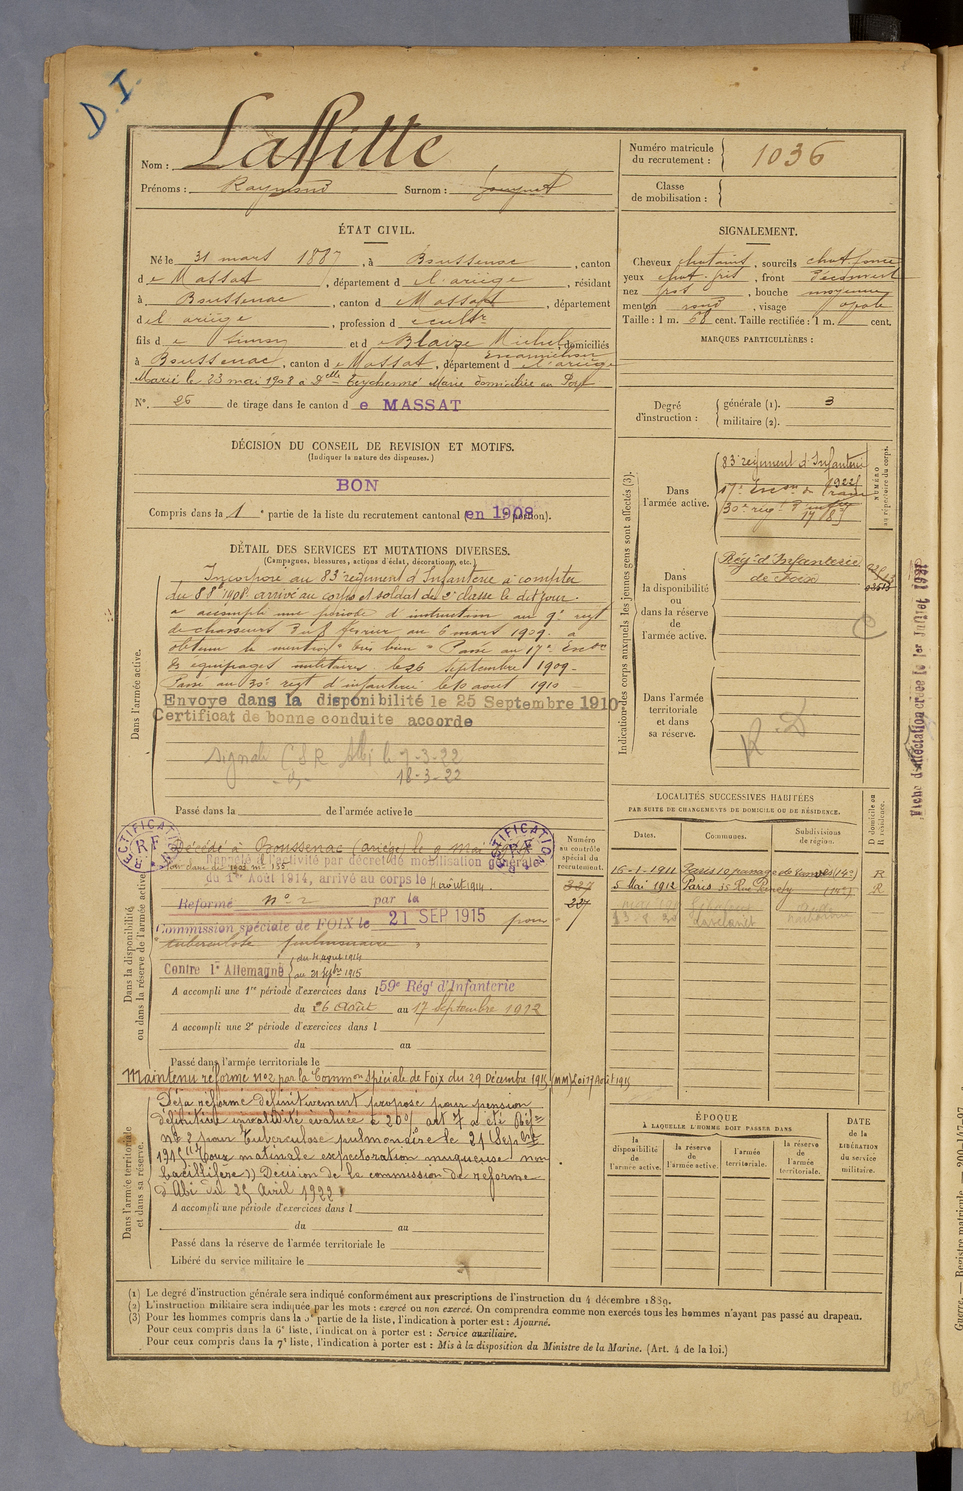 D.I.
Nom : Laffitte
Prénoms : Raymond Surnom :
Numéro matricule du recrutement : 1036
Classe de mobilisation :
ÉTAT CIVIL.
Né le 31 mars 1887, à Boussenac, canton
de Massat, département de l'ariège, résidant
à Boussenac, canton de Massat, département
de l'ariège, profession de cultr
fils de et de Blaize Michel, domiciliés
à Boussenac, canton de Massat, département de l'ariège
Marié le 23 mai 1908 à Delle Teychenné Marie domiciliée au Port
N° 26 de tirage dans le canton de MASSAT
SIGNALEMENT.
Cheveux chatains, sourcils chat. foncé
yeux chat. gris, front découvert
nez gros, bouche moyenne
menton rond, visage ovale
Taille : 1 m. 58 cent. Taille rectifiée : 1 m. cent.
MARQUES PARTICULIÈRES :
Degré d'instruction : générale (1). 3
militaire (2).
DÉCISION DU CONSEIL DE REVISION ET MOTIFS.
(Indiquer la nature des dispenses.)
BON
Compris dans la 1e partie de la liste du recrutement cantonal (en 1908 portion).
DÉTAIL DES SERVICES ET MUTATIONS DIVERSES.
(Campagnes, blessures, actions d'éclat, décorations, etc.)
Dans l'armée active.
Incorporé au 83e régiment d'Infanterie à compter
du 8 8bre 1908. arrivé au corps et soldat de 2e classe le dit jour.
a accompli une période d'instruction au 9e regt
de chasseurs du 8 février au 6 mars 1909. a
obtenu la mention "très bien" Passé au 17e Escon
des équipages militaires le 26 septembre 1909.
Passé au 30e regt d'infanterie le 10 aout 1910
Envoyé dans la disponibilité le 25 Septembre 1910
Certificat de bonne conduite accordé
Signalé C S R Albi le 7-3-22
18-3-22
Passé dans la de l'armée active le
Dans la disponibilité ou dans la réserve de l'armée active.
RECTIFICATION RF
RECTIFICATION RF
Décédé à Boussenac (Ariège) le 9 Mai
Rappelé à l'activité par décret de mobilisation générale
du 1er Août 1914, arrivé au corps le 4 août 1914.
Réformé n° 2 par la
Commission spéciale de FOIX le 21 SEP 1915 pour
"tuberculose pulmonaire"
Contre l'Allemagne du 4 août 1914
au 21 Sbre 1915
A accompli une 1re période d'exercices dans l 59e Régt d'Infanterie
du 26 Août au 17 Septembre 1912
A accompli une 2e période d'exercices dans l
du au
Passé dans l'armée territoriale le
Maintenu réformé n°2 par la Common Spéciale de Foix du 29 Décembre 1915 (MM) Loi 17 Août 1915
Dans l'armée territoriale et dans sa réserve.
Déjà réformé définitivement proposé pour pension
définitive invalidité évaluée à 20% art 7 a été Réf.
n° 2 pour Tuberculose pulmonaire le 21 Septbre
1915 "Toux matinale expectoration muqueuse non
bacillifère)). Décision de la commission de réforme
d'Albi du 25 Avril 1922.
A accompli une période d'exercices dans l
du au
Passé dans la réserve de l'armée territoriale le
Libéré du service militaire le
Indication des corps auxquels les jeunes gens sont affectés (3).
NUMÉRO au répertoire du corps.
Dans l'armée active.
83e régiment d'Infanterie
17e Escon du Train
30e régt d'infrie
Dans la disponibilité ou dans la réserve de l'armée active.
Régt d'Infanterie
de Foix
Dans l'armée territoriale et dans sa réserve.
R.D
Fiche d'affectation créée le 1er Juillet
LOCALITÉS SUCCESSIVES HABITÉES
PAR SUITE DE CHANGEMENTS DE DOMICILE OU DE RÉSIDENCE.
Dates. Communes. Subdivisions de région. D domicile ou R résidence.
Numéro au contrôle spécial du recrutement.
16-1-1911 Paris 10 passage de R
5 Mai 1912 Paris 55 Rue R
Lavelanet
ÉPOQUE
À LAQUELLE L'HOMME DOIT PASSER DANS
la disponibilité de l'armée active. la réserve de l'armée active. l'armée territoriale. la réserve de l'armée territoriale.
DATE de la LIBÉRATION du service militaire.
(1) Le degré d'instruction générale sera indiqué conformément aux prescriptions de l'instruction du 4 décembre 1889.
(2) L'instruction militaire sera indiquée par les mots : exercé ou non exercé. On comprendra comme non exercés tous les hommes n'ayant pas passé au drapeau.
(3) Pour les hommes compris dans la 5e partie de la liste, l'indication à porter est : Ajourné.
Pour ceux compris dans la 6e liste, l'indication à porter est : Service auxiliaire.
Pour ceux compris dans la 7e liste, l'indication à porter est : Mis à la disposition du Ministre de la Marine. (Art. 4 de la loi.)